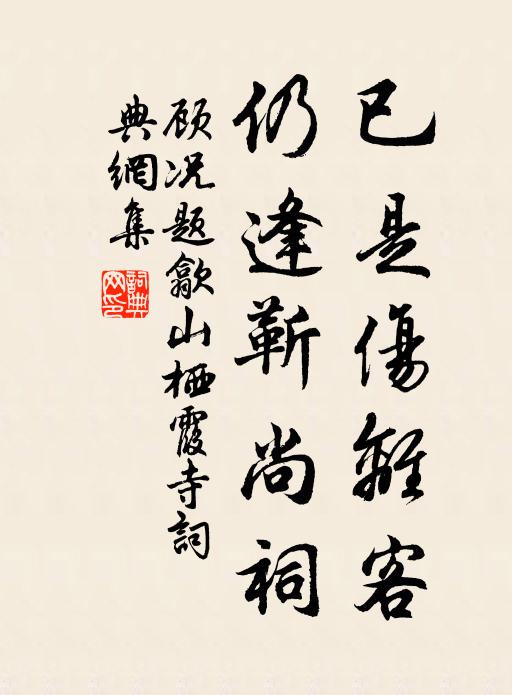 已是傷離客
仍逢靳尚祠
顾况題歙山栖霞寺詞
典網集
詞典網印